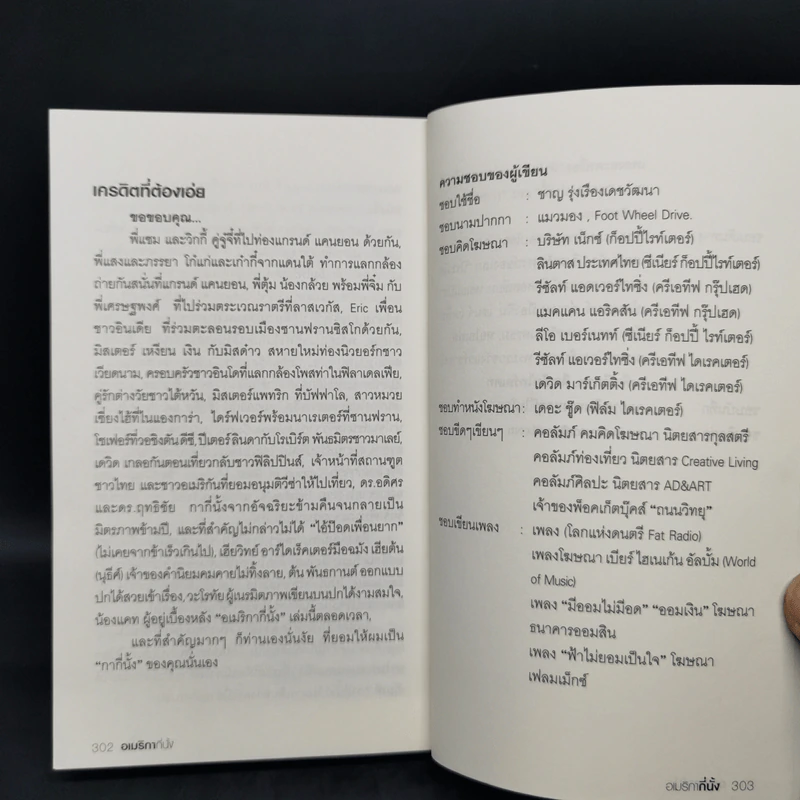 เครดิตที่ต้องเอ่ย
ขอขอบคุณ...
พี่แซม และวิกกี้ คู่จู๋จี๋ที่ไปท่องแกรนด์ แคนยอน ด้วยกัน,
พี่แสงและภรรยา โก๋แก่และเก๋ากี้จากแดนใต้ ทำการแลกกล้อง
ถ่ายกันสนั่นที่แกรนด์ แคนยอน, พี่ตุ้ม น้องกล้วย พร้อมพี่จิ๋ม กับ
พี่เศรษฐพงศ์ ที่ไปร่วมตระเวณราตรีที่ลาสเวกัส, Eric เพื่อน
ชาวอินเดีย ที่ร่วมตะลอนรอบเมืองซานฟรานซิสโกด้วยกัน,
มิสเตอร์ เหงียน เงิน กับมิสด๋าว สหายใหม่ท่องนิวยอร์กชาว
เวียดนาม, ครอบครัวชาวอินโดที่แลกกล้องโพสท่าในฟิลาเดลเฟีย,
คู่รักต่างวัยชาวไต้หวัน, มิสเตอร์แพทริก ที่บัฟฟาโล, สาวหมวย
เซี่ยงไฮ้ที่ไนแองการ่า, ไดร์ฟเวอร์พร้อมนาเรเตอร์ที่ซานฟราน,
โชเฟอร์ที่วอชิงตัน ดีซี, ปีเตอร์ ลินดากับโรเบิร์ต พันธมิตรชาวมาเลย์,
เดวิด เกลอกันตอนเที่ยวกลับชาวฟิลิปปินส์, เจ้าหน้าที่สถานฑูต
ชาวไทย และชาวอเมริกันที่ยอมอนุมติวีซ่าให้ไปเที่ยว, ดร.อดิศร
และดร.ฤทธิชัย กากี่นั้งจากอัจฉริยะข้ามคืนจนกลายเป็น
มิตรภาพข้ามปี, และที่สำคัญไม่กล่าวไม่ได้ "ไอ้ป๊อดเพื่อนยาก"
(ไม่เคยจากซ้าเร็วเกินไป), เฮียวิทย์ อาร์ตไดเร็คเตอร์มือฉมัง เฮียต้น
(นุธีศ์) เจ้าของคำนิยมคมคายไม่ทิ้งลาย, ต้น พันธกานต์ ออกแบบ
ปกได้สวยเข้าเรื่อง, วะโรทัย ผู้เนรมิตภาพเขียนบนปกได้งามสมใจ,
น้องแคท ผู้อยู่เบื้องหลัง "อเมริกากี่นั้ง" เล่มนี้ตลอดเวลา,
และที่สำคัญมากๆ ก็ท่านเองนั่นงัย ที่ยอมให้ผมเป็น
"กากี่นั้ง" ของคุณนั่นเอง
302 อเมริกากี่นั้ง
ความชอบของผู้เขียน
ชอบใช้ชื่อ : ชาญ รุ่งเรืองเดชวัฒนา
ชอบนามปากกา : แมวมอง , Foot Wheel Drive.
ชอบคิดโฆษณา : บริษัท เน็กซ์ (ก็อปปี้ไรท์เตอร์)
ลินตาส ประเทศไทย (ซีเนียร์ ก็อปปี้ไรท์เตอร์)
รีซัลท์ แอดเวอร์ไทซิ่ง (ครีเอทีฟ กรุ๊ปเฮด)
แมคแคน แอริคสัน (ครีเอทีฟ กรุ๊ปเฮด)
ลีโอ เบอร์เนทท์ (ซีเนียร์ ก็อปปี้ ไรท์เตอร์)
รีซัลท์ แอเวอร์ไทซิ่ง (ครีเอทีฟ ไดเรคเตอร์)
เดวิด มาร์เก็ตติ้ง (ครีเอทีฟ ไดเรคเตอร์)
ชอบทำหนังโฆษณา : เดอะ ชู๊ต (ฟิล์ม ไดเรคเตอร์)
ชอบขีดๆเขียนๆ : คอลัมภ์ คมคิดโฆษณา นิตยสารกุลสตรี
คอลัมภ์ท่องเที่ยว นิตยสาร Creative Living
คอลัมภ์ศิลปะ นิตยสาร AD&ART
เจ้าของพ็อคเก็ตบุ๊คส์ "ถนนวิทยุ"
ชอบเขียนเพลง : เพลง (โลกแห่งดนตรี Fat Radio)
เพลงโฆษณา เบียร์ ไฮเนเก้น อัลบั้ม (World
of Music)
เพลง "มีออมไม่มีอด" "ออมเงิน" โฆษณา
ธนาคารออมสิน
เพลง "ฟ้าไม่ยอมเป็นใจ" โฆษณา
เฟลมเม็กซ์
อเมริกากี่นั้ง 303